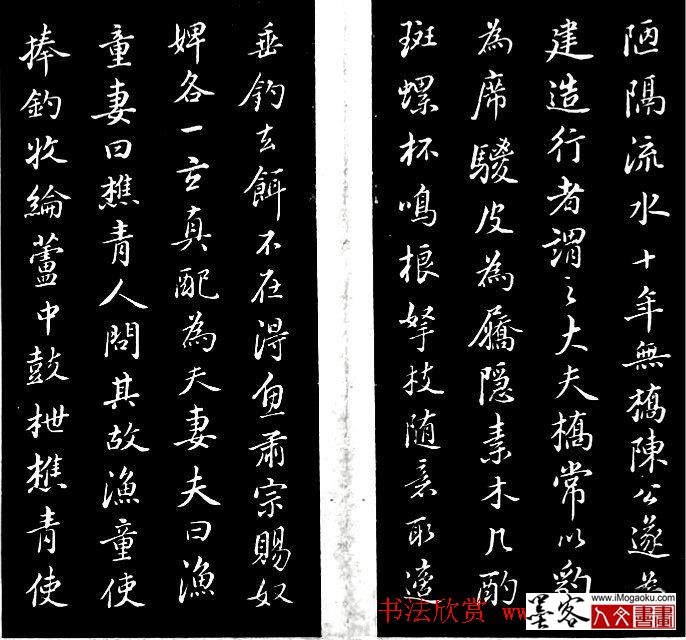 陋隔流水十年無橋陳公遂為
建造行者謂之大夫橋常以豹
為席騣皮為屩隱素木几酌
斑螺杯鳴榔拏杖随意取適
垂釣去餌不在得魚肅宗賜奴
婢各一玄真配為夫妻夫曰漁
童妻曰樵青人問其故漁童使
捧釣收綸蘆中鼓枻樵青使
书法欣赏 www
墨客 www.iMogaoku.com
人文書画